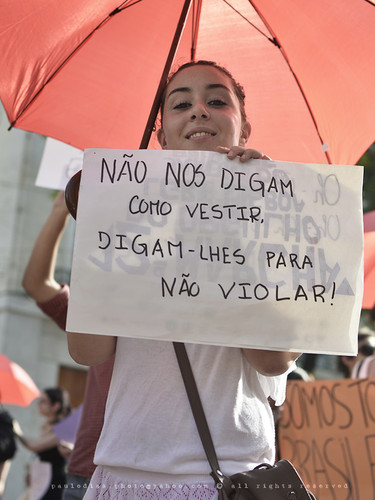 NÃO NOS DIGAM
COMO VESTIR,
DIGAM-LHES PARA
NÃO VIOLAR!
SOMOS TO
BRASIL
paulodias.photographer.com © all rights reserved